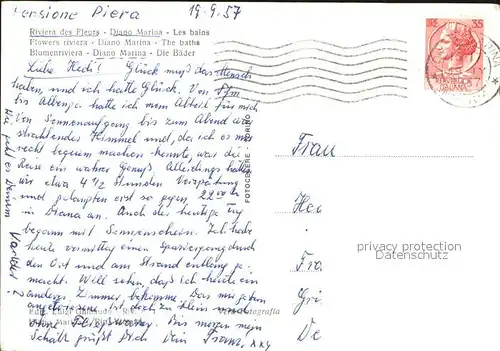 Pensione Piera 19.9.57
Riviera des Fleurs - Diano Marina - Les bains
Flowers riviera - Diano Marina - The baths
Blumenriviera - Diano Marina - Die Bäder
35
Liebe Hedi! Glück muß das Mensch
haben, und ich hatte Glück. Von
bis Albenga hatte ich mein Abteil für mich.
Von Sonnenaufgang bis zum Abend war
strahlender Himmel und, da ich es mir
recht bequem machen konnte, war die
Reise ein wahrer Genuß. Allerdings hatten
wir etwa 4 1/2 Stunden Verspätung
und gelangten erst so gegen 22 00
in Diana an. Auch der heutige Tag
begann mit Sonnenschein. Ich habe
heute vormittag einen Spaziergang durch
den Ort und am Strand entlang ge-
macht. Will sehen, daß ich heute ein
anderes Zimmer bekomme. Das mir geben
ist doch zu klein und
ohne Fließwasser. Bis morgen mein
Schatz grüßt Dich Dein Franz
FOTOCELERE - TORINO
Frau
privacy protection
Datenschutz
Vera fotografia